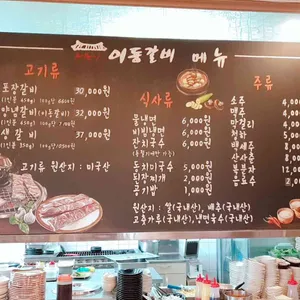 이동갈비 메뉴
고기류
포장갈비 30,000원
(1인분 450g)
양념갈비 (이동갈비) 32,000원
(1인분 450g)
생갈비 37,000원
(1인분 450g)
고기류 원산지 : 미국산
식사류
물냉면 6,000원
비빔냉면 6,000원
잔치국수 6,000원
동치미국수 5,000원
된장찌개 2,000원
공기밥 1,000원
원산지 : 쌀(국내산), 배추(국내산)
고춧가루(국내산), 냉면육수(국내산)
주류
소주
맥주
막걸리
청하
백세주
산사춘
복분자
음료수